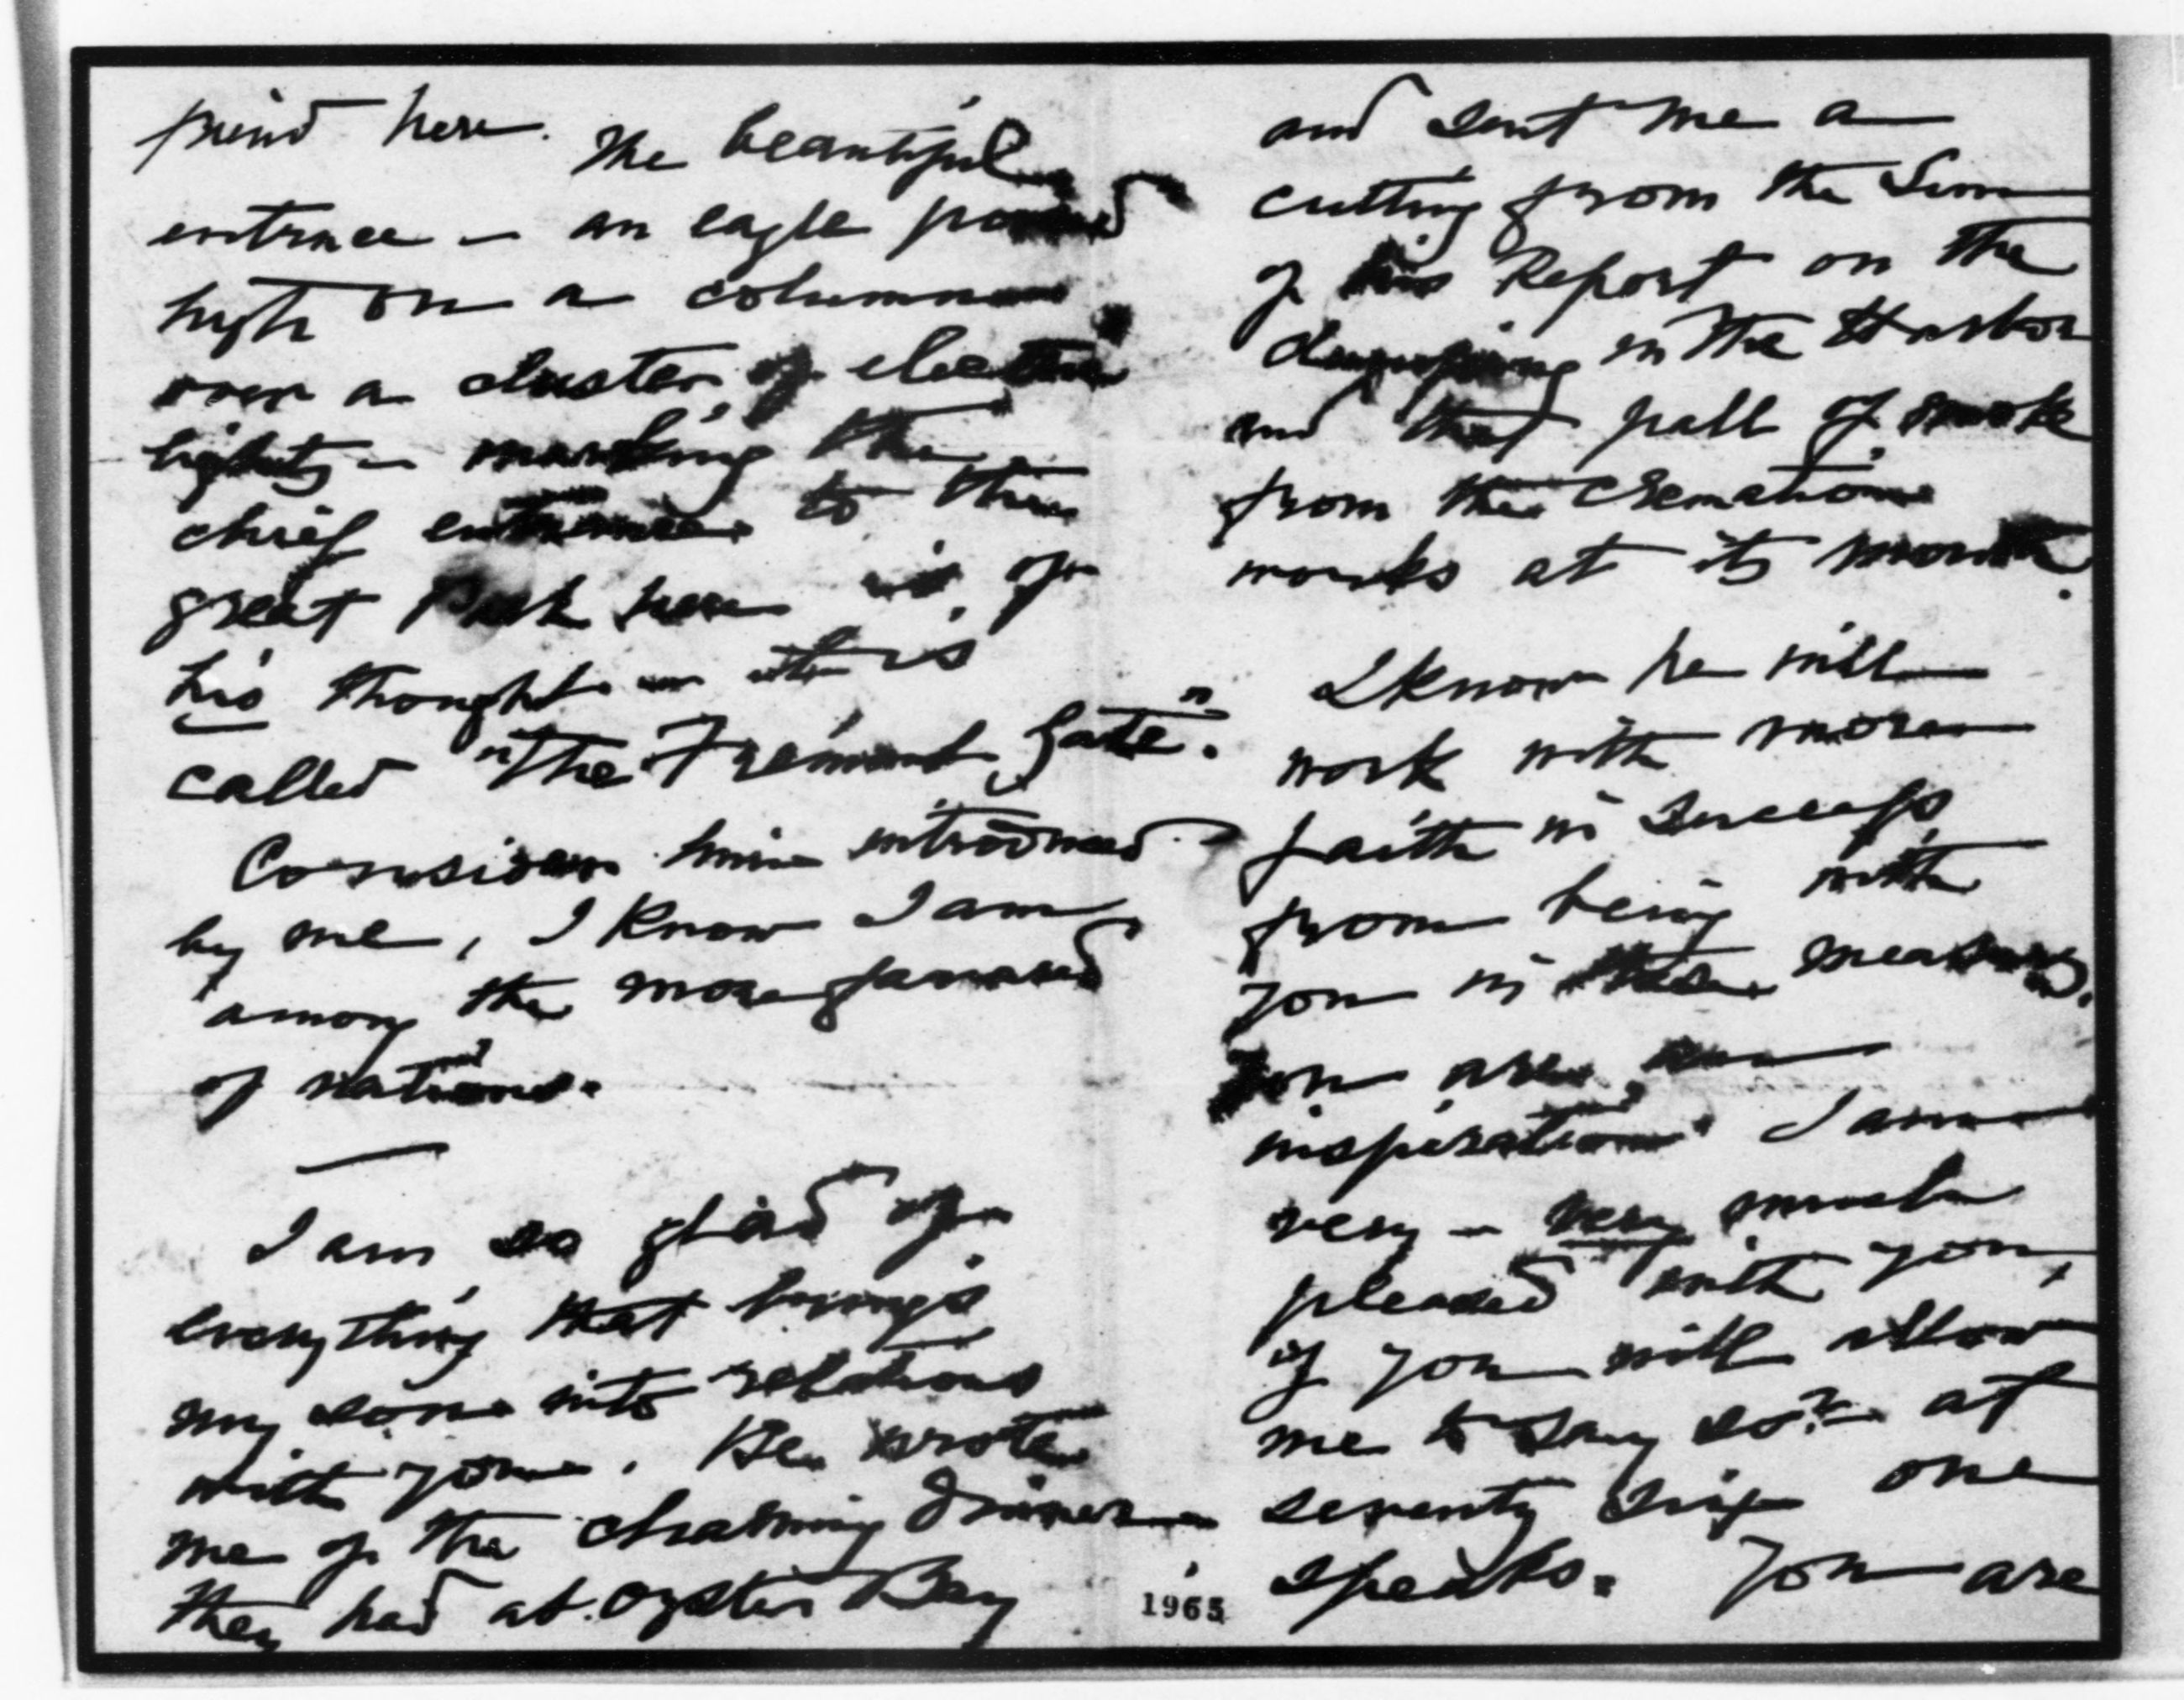 friend here. The beautiful
entrance — an eagle poised
high on a column
over a cluster of electric
lights — marking the
chief entrance to the
great Park here is of
his thought — it is
called "the Frémont Gate".
Consider him introduced
by me, I know I am
among the more favored
of nations.
—
I am so glad of
everything that brings
my sons into relations
with you. He wrote
me of the charming dinner
they had at Oyster Bay
1965
and sent me a
cutting from the Sun
of his Report on the
dumping in the Harbor
and that pall of smoke
from the Cremation
works at its mouth.
I know he will
work with more
faith in success
from being with
you in these measures.
You are an
inspiration. I am
very — very much
pleased with you,
if you will allow
me to say so? — at
seventy six one
speaks. You are